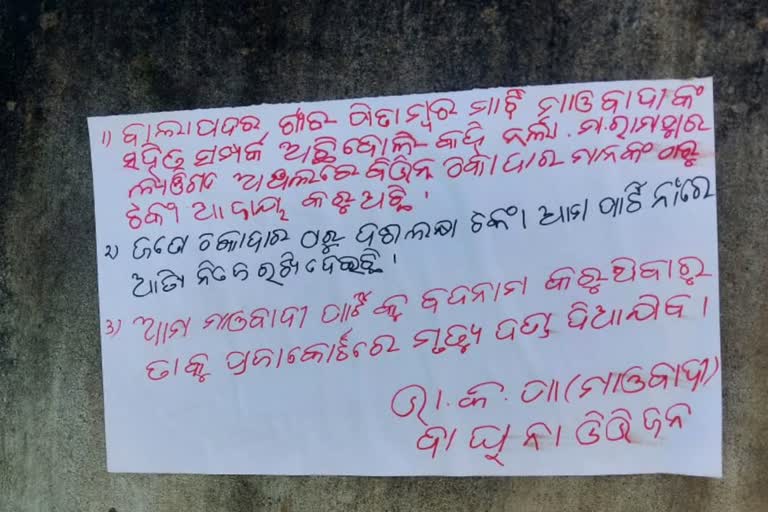 ୧) ବାଲାପଦର ଗାଁର ପିତାମ୍ବର ମାଝି ମାଓବାଦୀଙ୍କ
ସହିତ ସମ୍ପର୍କ ଅଛି ବୋଲି କହି ମ.ରାମପୁର
ଅଞ୍ଚଳରେ ବିଭିନ୍ନ ଠିକାଦାର ମାନଙ୍କ ଠାରୁ
ଟଙ୍କା ଆଦାୟ କରୁଅଛି ।
୨) ଜଣେ ଠିକାଦାର ଠାରୁ ଦଶଲକ୍ଷ ଟଙ୍କା ଆମ ପାର୍ଟି ନାଁରେ
ଆଣି ନିଜେ ରଖିଦେଇଛି ।
୩) ଆମ ମାଓବାଦୀ ପାର୍ଟି କୁ ବଦନାମ କରୁଥିବାରୁ
ତାକୁ ପ୍ରଜାକୋର୍ଟରେ ମୃତ୍ୟୁ ଦଣ୍ଡ ଦିଆଯିବ ।
ଭା.କ.ପା (ମାଓବାଦୀ)